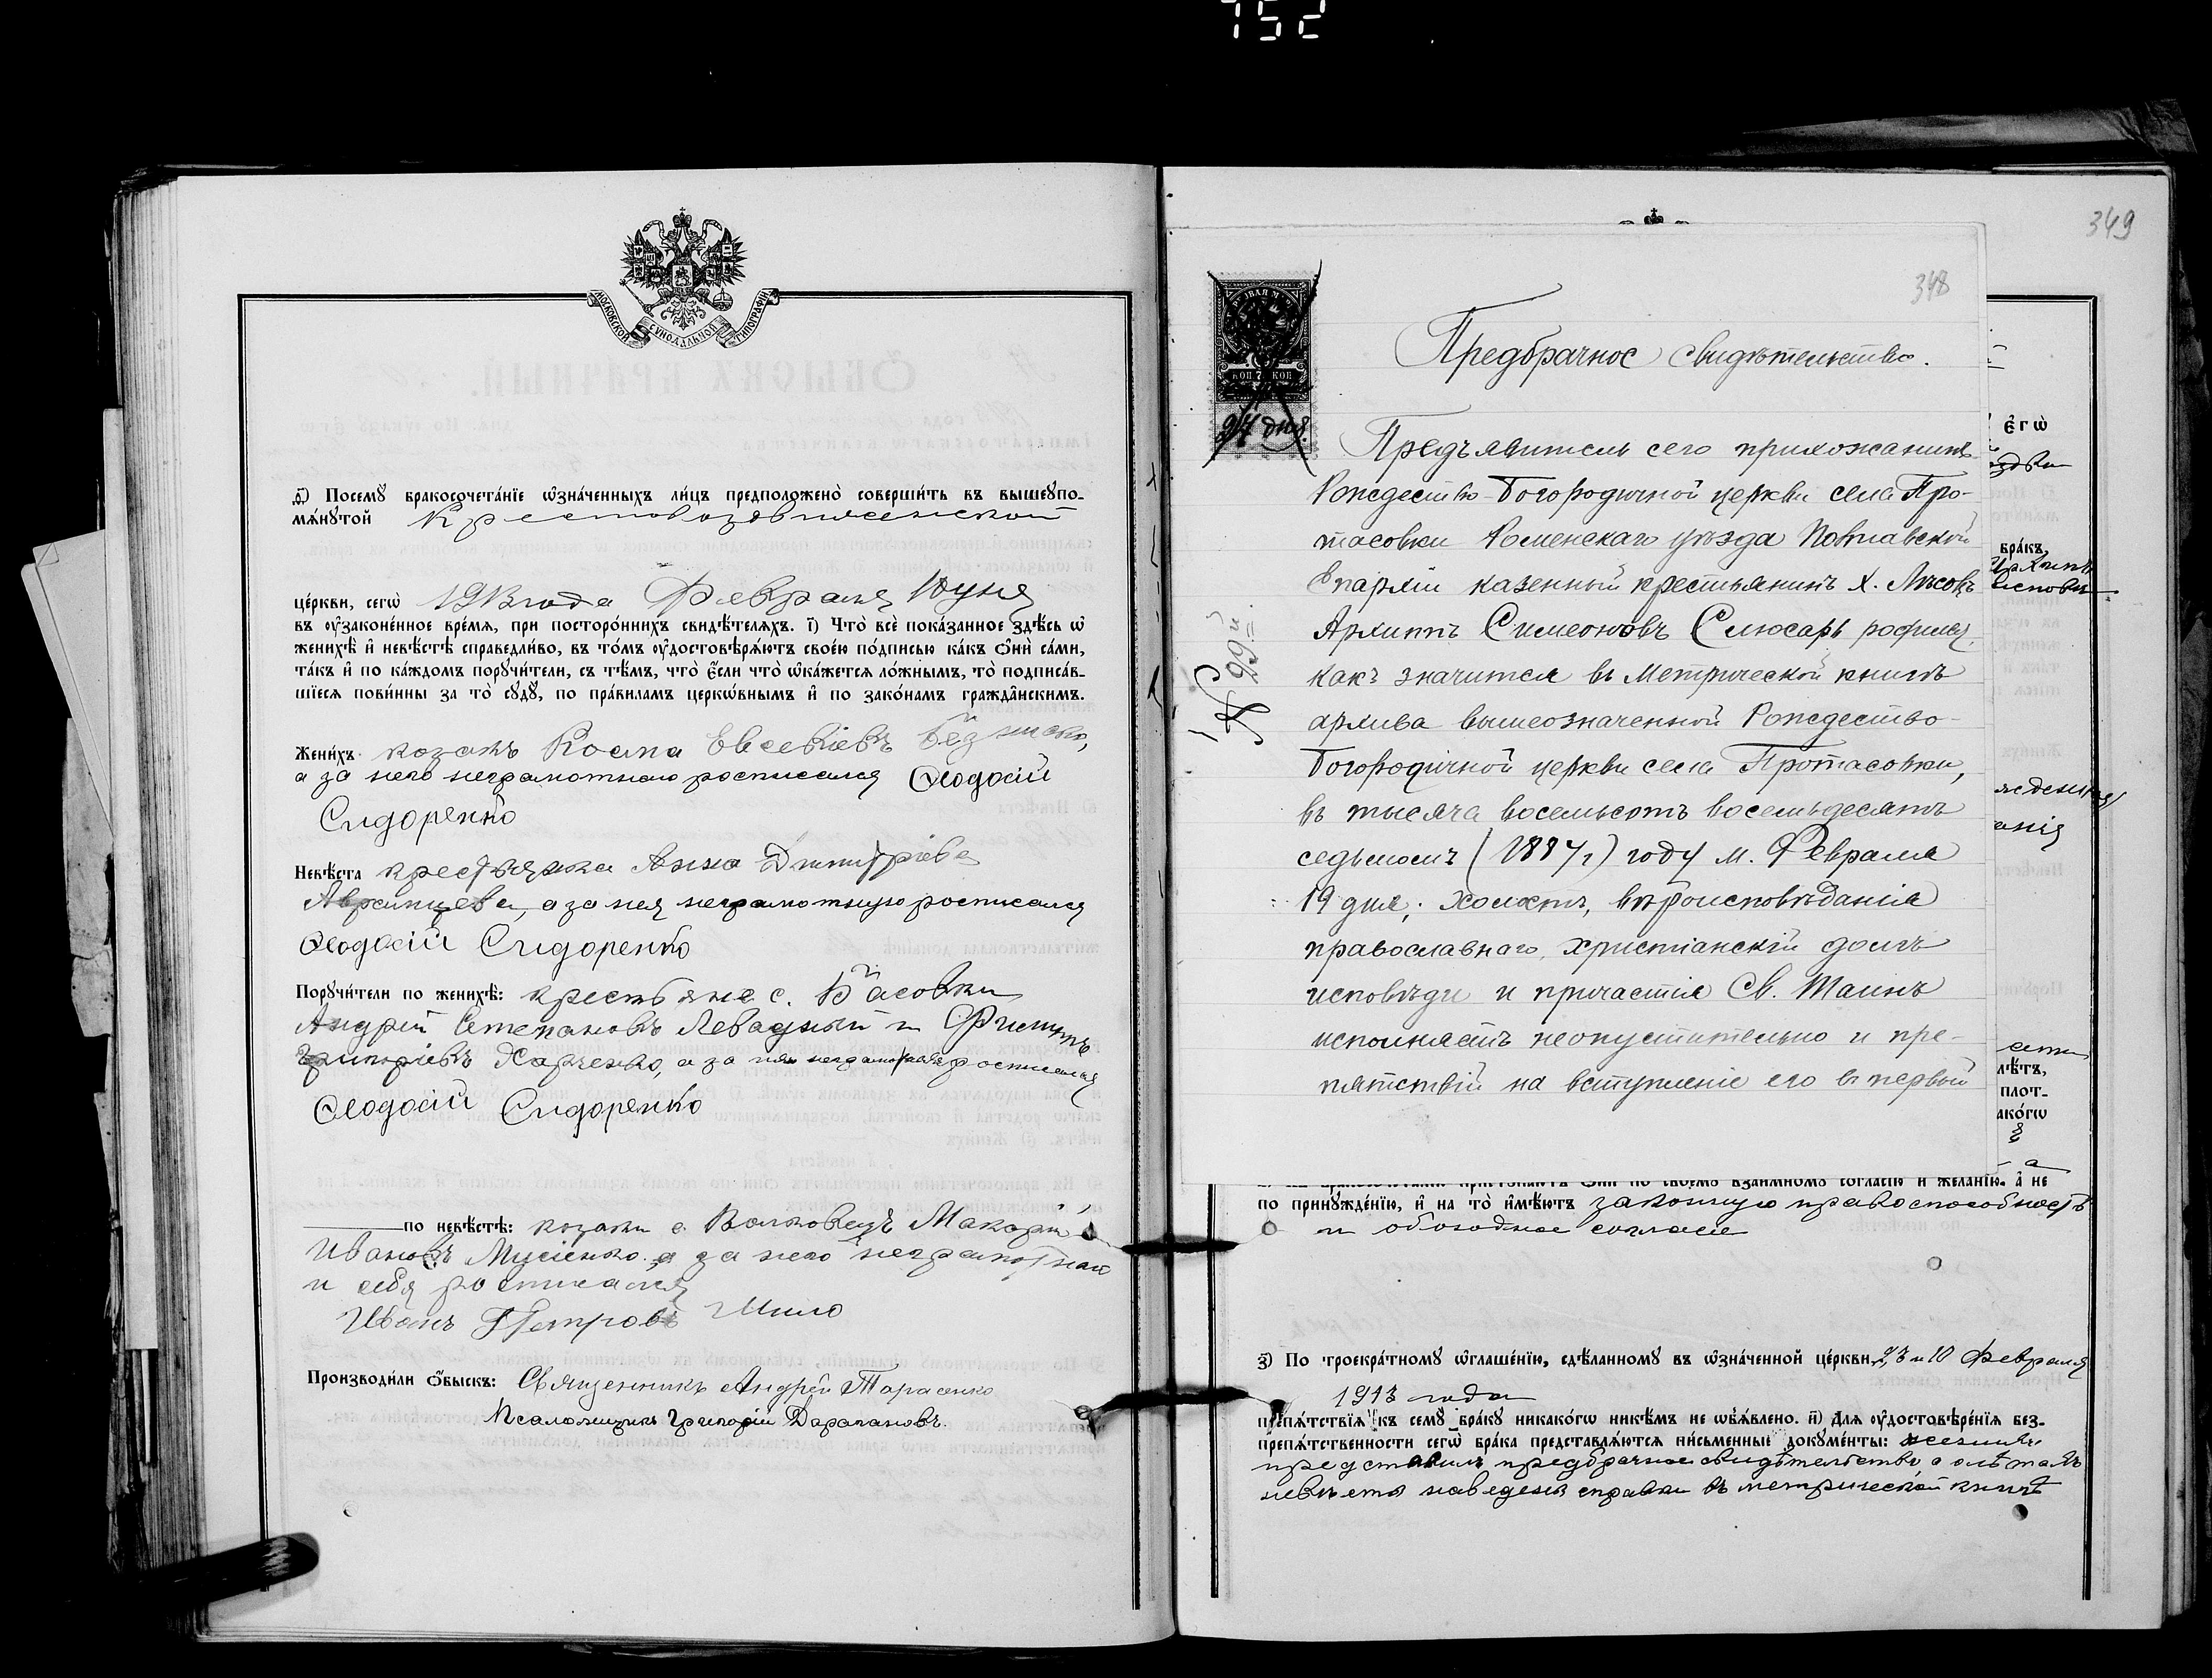 752
МОСКОВСКОЙ СѴНОДАЛЬНОЙ ТИПОГРАФІИ
ѳ҃) Посемꙋ бракосочета́нїе ѡ҆зна́ченныхъ ли́цъ предположено̀ соверши́ть въ вышеꙋпо-
мѧ́нꙋтой Крестовоздвиженской
це́ркви, сегѡ̀ 1913 года Февраля 10 дня
въ ᲂу҆законе́нное вре́мѧ, при посторо́ннихъ свидѣ́телѧхъ. і҃) Что̀ всѐ пока́занное здѣ́сь ѡ҆
женихѣ̀ и҆ невѣ́стѣ справедли́во, въ то́мъ ᲂу҆достовѣрѧ́ютъ свое́ю по́дписью ка́къ ѻ҆нѝ са́ми,
та́къ и҆ по ка́ждомъ порꙋчи́тели, съ тѣ́мъ, что̀ є҆́сли что̀ ѡ҆ка́жетсѧ ло́жнымъ, то̀ подписа́в-
шїесѧ пови́нны за то̀ сꙋдꙋ̀, по пра́виламъ церкѡ́внымъ и҆ по зако́намъ гражда̑нскимъ.
Жени́хъ козакъ Косма Евсевіевъ
а за него неграмотнаго росписался Ѳеодосій
Сидоренко
Невѣ́ста крестьянка Анна Димитріева
а за нея неграмотную росписался
Ѳеодосій Сидоренко
Порꙋчи́тели по женихѣ̀: крестьяне с. Басовки
Андрей Степановъ Левадный и Филиппъ
Григоріевъ Харченко, а за них неграмотныхъ росписался
Ѳеодосій Сидоренко
по невѣ́стѣ: козаки с. Волковецъ Макарій
Ивановъ Мусіенко а за него неграмотнаго
и себя росписался
Иванъ Петровъ
Производи́ли ѻ҆́быскъ: Священникъ Андрей Тарасенко
Псаломщикъ Григорій
349
348
КОП 7. КОП
24 дня.
№ 29й.
Предбрачное свидѣтельство.
Предъявитель сего прихожанинъ
Рождество-Богородичной церкви села Про-
тасовки Роменскаго уѣзда Полтавской
Епархіи казенный крестьянинъ х. Лѣсовъ
Архиппъ Симеоновъ Слюсарь родился,
какъ значится въ Метрической книгѣ
архива вышеозначенной Рождество-
Богородичной церкви села Протасовки,
въ тысяча восемьсотъ восемьдесятъ
седьмомъ (1887 г) году м. Февраля
19 дня; холостъ, вѣроисповѣданія
православнаго, христіанскій долгъ
исповѣди и причастія Св. Таинъ
исполняетъ неопустительно и пре-
пятствій на вступленіе его въ первый
є҆гѡ̀
бра́къ,
Архиппъ
анія
лѣ́тъ,
плот-
ако́гѡ
по принꙋжде́нїю, и҆ на то̀ и҆мѣ́ютъ законную правоспособность
и обоюдное согласіе
з҃) По троекра́тномꙋ ѡ҆глаше́нїю, сдѣ́ланномꙋ въ ѡ҆зна́ченной це́ркви 2, 3 и 10 Февраля
1913 года
препѧ́тствїѧ къ семꙋ̀ бра́кꙋ никако́гѡ никѣ́мъ не ѡ҆б̾ѧ́влено. и҃) Длѧ ᲂу҆достовѣре́нїѧ без-
препѧ́тственности сегѡ̀ бра́ка представлѧ́ютсѧ пи́сьменные докꙋме́нты: женихъ
представилъ предбрачное свидѣтельство, а о лѣтахъ
невѣсты наведены справки въ метрической книгѣ